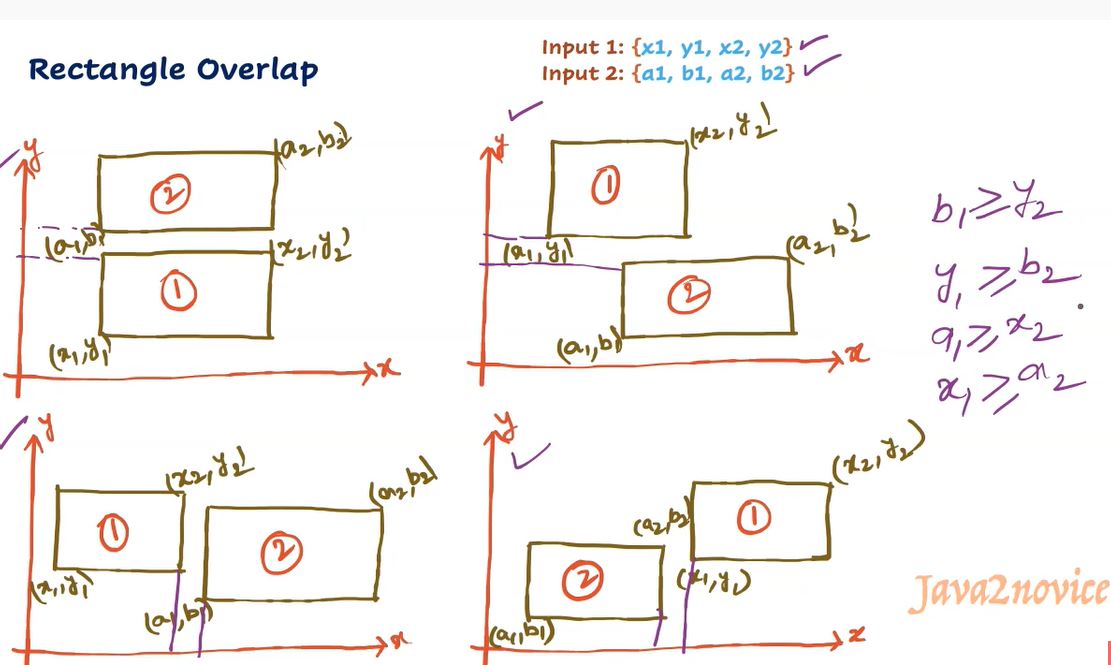 Rectangle Overlap
Input 1: {x1, y1, x2, y2}
Input 2: {a1, b1, a2, b2}
y
(a2, b2)
2
(a1, b
(x2, y2)
1
(x1, y1)
x
y
(x2, y2)
1
(a1, y1)
(a2, b2)
2
(a1, b1)
x
b1 ≥ y2
y1 ≥ b2
a1 ≥ x2
x1 ≥ a2
y
(x2, y2)
1
(x1, y1)
(a2, b2)
2
(a1, b1)
x
y
(x2, y2)
1
(a2, b2)
(x1, y1)
2
(a1, b1)
x
Java2novice